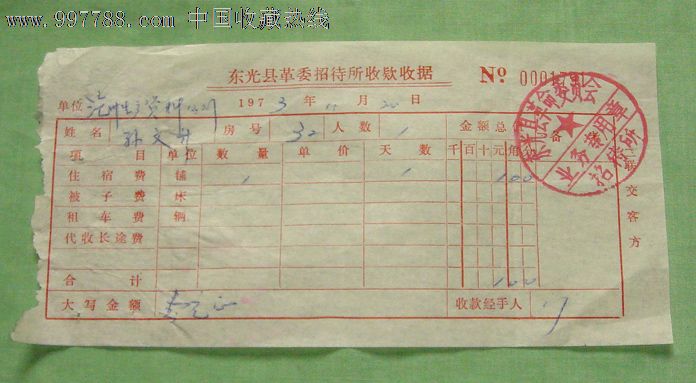 www.997788.com 中国收藏热线
东光县革委招待所收款收据 № 0001791
单位 沧州生产资料公司 1973年11月20日
姓名 孙文 房号 32 人数 1 金额总 备
项目 单位 数量 单价 天数 千百十元角
住宿费 铺 1 1 100
被子费 床
租车费 辆
代收长途费
合计 100
大写金额 壹元正 收款经手人
联交客方
东光县革命委员会
业务专用章
招待所